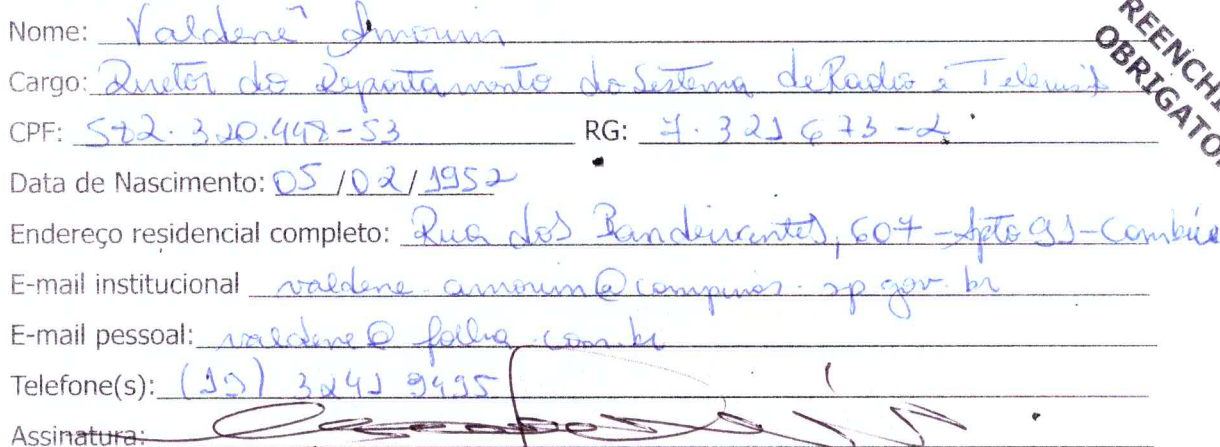 Nome: Valdenê Amorim
Cargo: Diretor do Departamento do Sistema de Radio e Televisã
PREENCHI
OBRIGATÓR
CPF: 582.320.448-53 RG: 7.321673-2
Data de Nascimento: 05/02/1952
Endereço residencial completo: Rua dos Bandeirantes, 607 - Apto 91 - Cambuí
E-mail institucional valdene.amorim@campinas.sp.gov.br
E-mail pessoal: valdene@folha.com.br
Telefone(s): (19) 3241 9495
Assinatura: